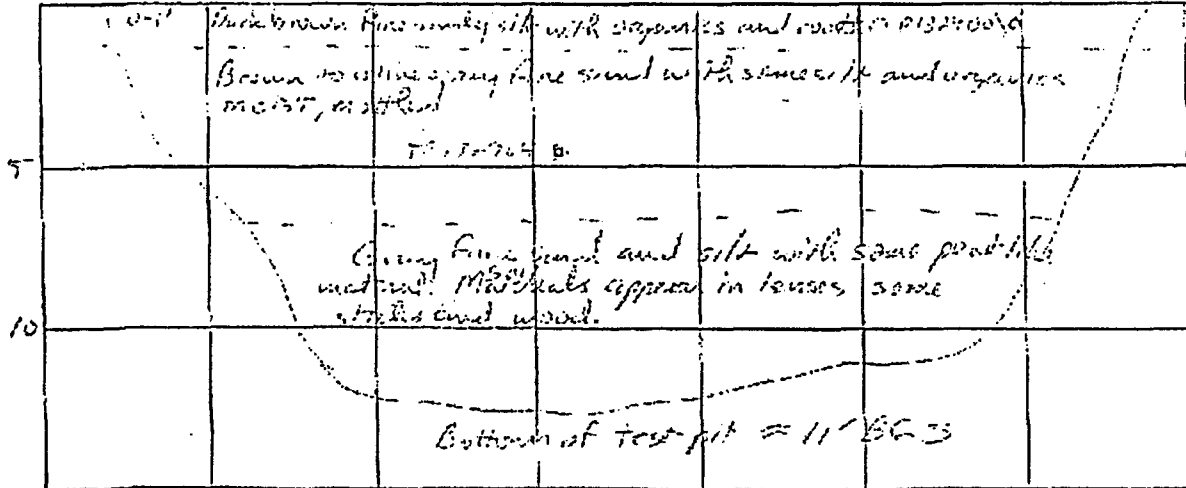 0-1' Dark brown fine sandy silt with organics and roots
Brown to olive gray fine sand with some silt and organics
moist, mottled
5
Gray fine sand and silt with some peat-like
material. Materials appear in lenses some
sticks and wood.
10
Bottom of test pit ≈ 11' BGS